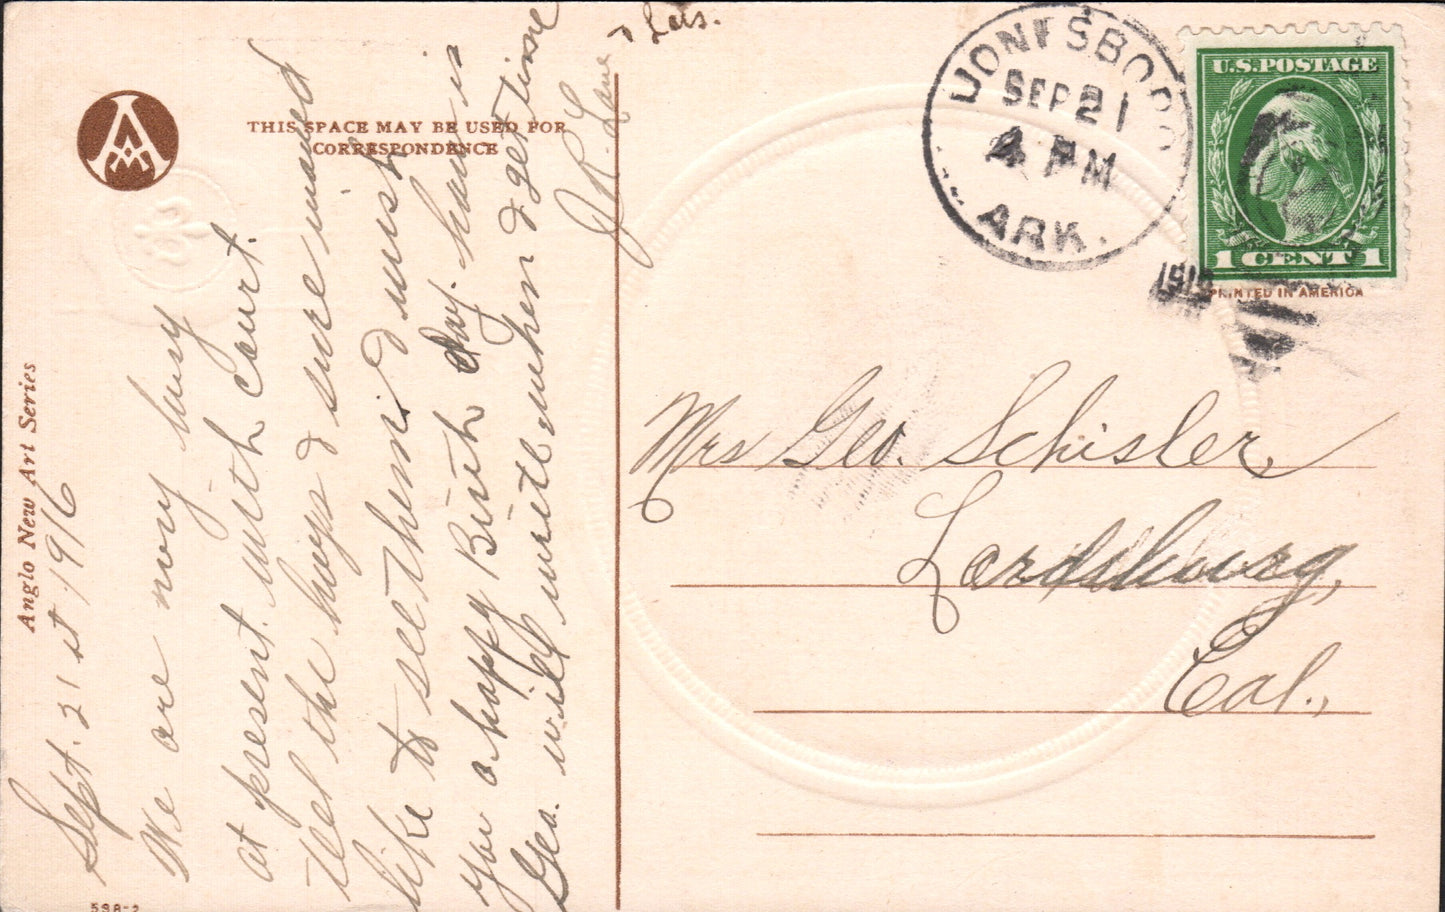 THIS SPACE MAY BE USED FOR
CORRESPONDENCE
Anglo New Art Series
598-2
Sept. 21 st 1916
We are very busy
at present with court.
Tell the boys I sure would
like to see them I wish
you a happy Birth day. is
Geo. will write when I get time
J R Lane
JONESBORO
SEP 21
4 PM
ARK.
191
U.S.POSTAGE
1 CENT 1
PRINTED IN AMERICA
Mrs Geo. Schisler,
Lordsburg,
Cal.,